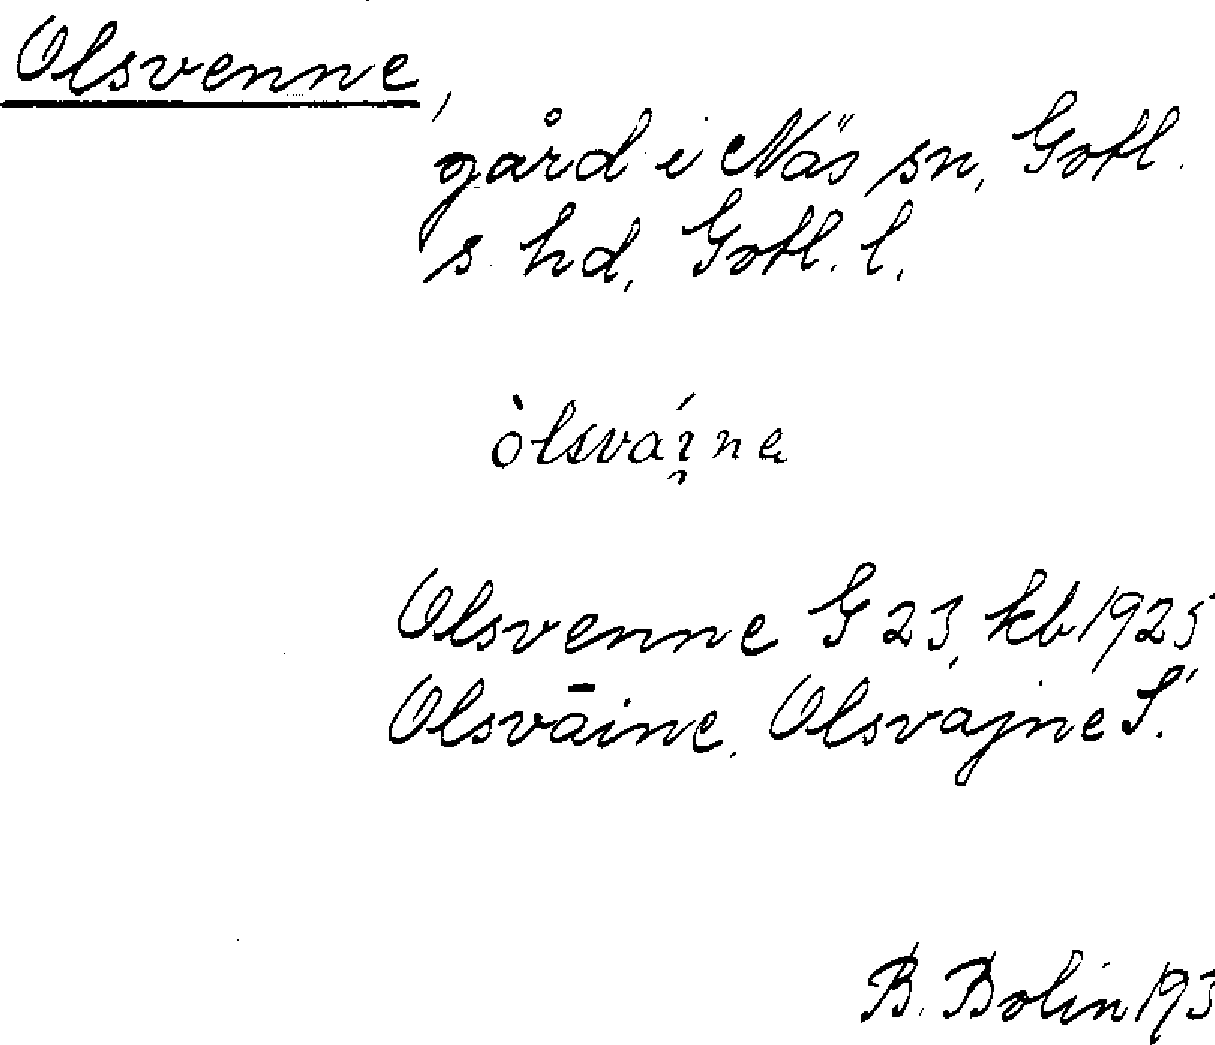 Olsvenne,
gård i Näs sn, Gotl.
s. hd, Gotl. l.
Olsvenne G 23, kb 1925
Olsvāine, Olsvajne S.
B. Bolin 193